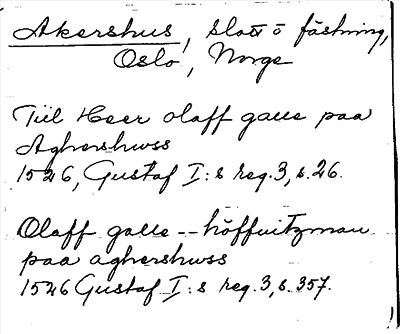 Akershus, slott o fästning,
Oslo, Norge
Till Heer olaff galle paa
Aghershwss
1526, Gustaf I:s reg. 3, s. 26.
Olaff galle -- höffuitzman
paa aghershwss
1526 Gustaf I:s reg. 3, s. 357.